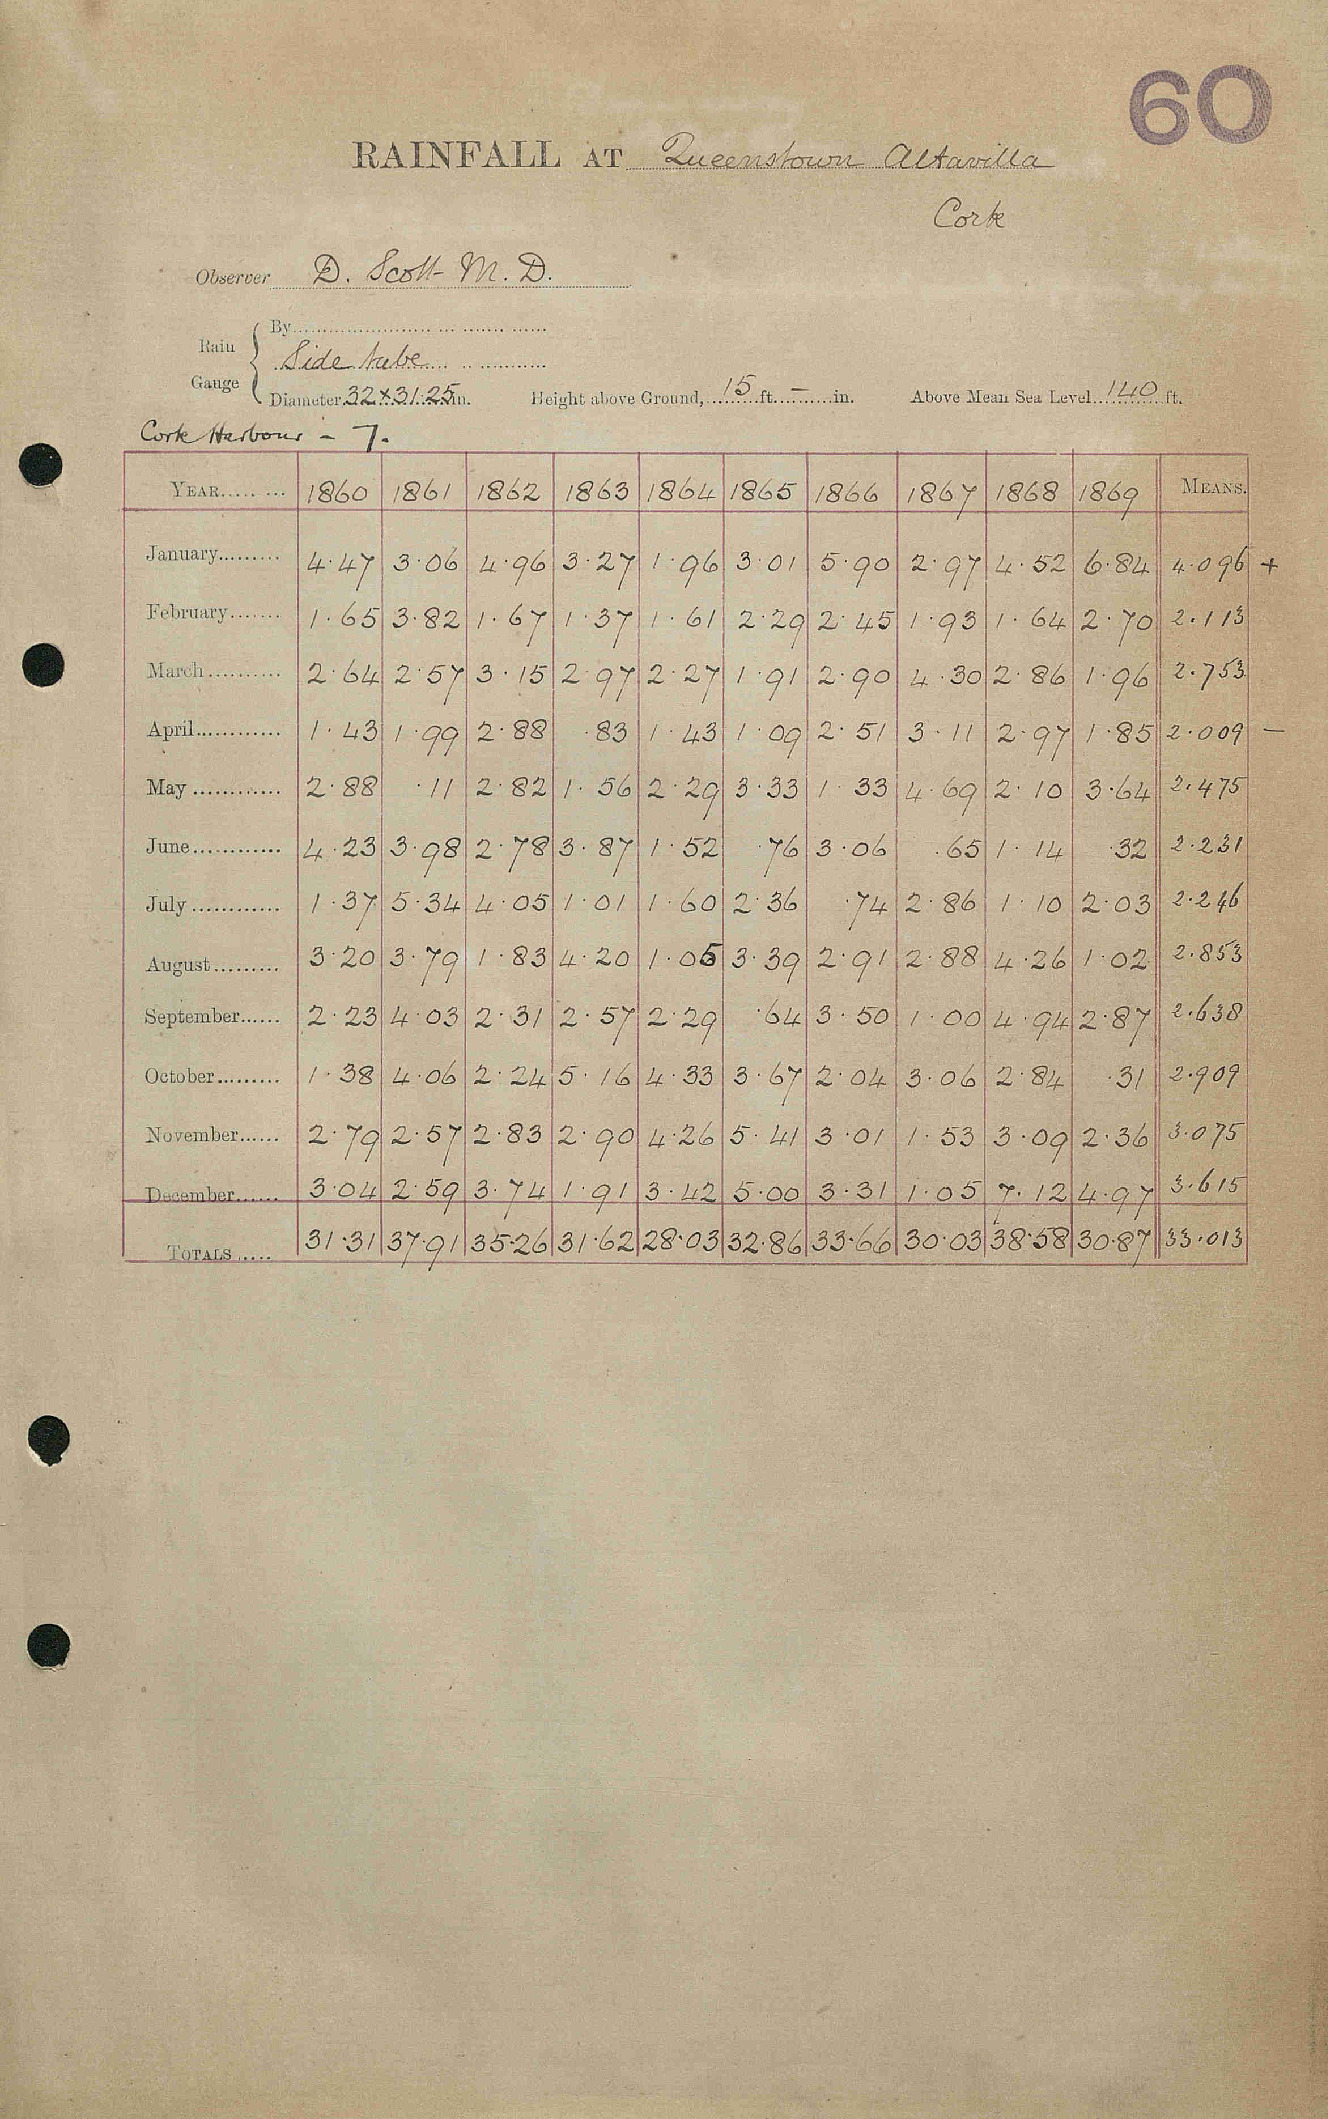 60
RAINFALL AT Queenstown Altavilla
Cork
Observer D. Scott M.D.
Rain Gauge { By
Side tube
Diameter 32×31.25 in. Height above Ground, 15 ft. – in. Above Mean Sea Level 140 ft.
Cork Harbour - 7.
YEAR 1860 1861 1862 1863 1864 1865 1866 1867 1868 1869 MEANS.
January 4.47 3.06 4.96 3.27 1.96 3.01 5.90 2.97 4.52 6.84 4.096 +
February 1.65 3.82 1.67 1.37 1.61 2.29 2.45 1.93 1.64 2.70 2.113
March 2.64 2.57 3.15 2.97 2.27 1.91 2.90 4.30 2.86 1.96 2.753
April 1.43 1.99 2.88 .83 1.43 1.09 2.51 3.11 2.97 1.85 2.009 –
May 2.88 .11 2.82 1.56 2.29 3.33 1.33 4.69 2.10 3.64 2.475
June 4.23 3.98 2.78 3.87 1.52 .76 3.06 .65 1.14 .32 2.231
July 1.37 5.34 4.05 1.01 1.60 2.36 .74 2.86 1.10 2.03 2.246
August 3.20 3.79 1.83 4.20 1.05 3.39 2.91 2.88 4.26 1.02 2.853
September 2.23 4.03 2.31 2.57 2.29 .64 3.50 1.00 4.94 2.87 2.638
October 1.38 4.06 2.24 5.16 4.33 3.67 2.04 3.06 2.84 .31 2.909
November 2.79 2.57 2.83 2.90 4.26 5.41 3.01 1.53 3.09 2.36 3.075
December 3.04 2.59 3.74 1.91 3.42 5.00 3.31 1.05 7.12 4.97 3.615
TOTALS 31.31 37.91 35.26 31.62 28.03 32.86 33.66 30.03 38.58 30.87 33.013